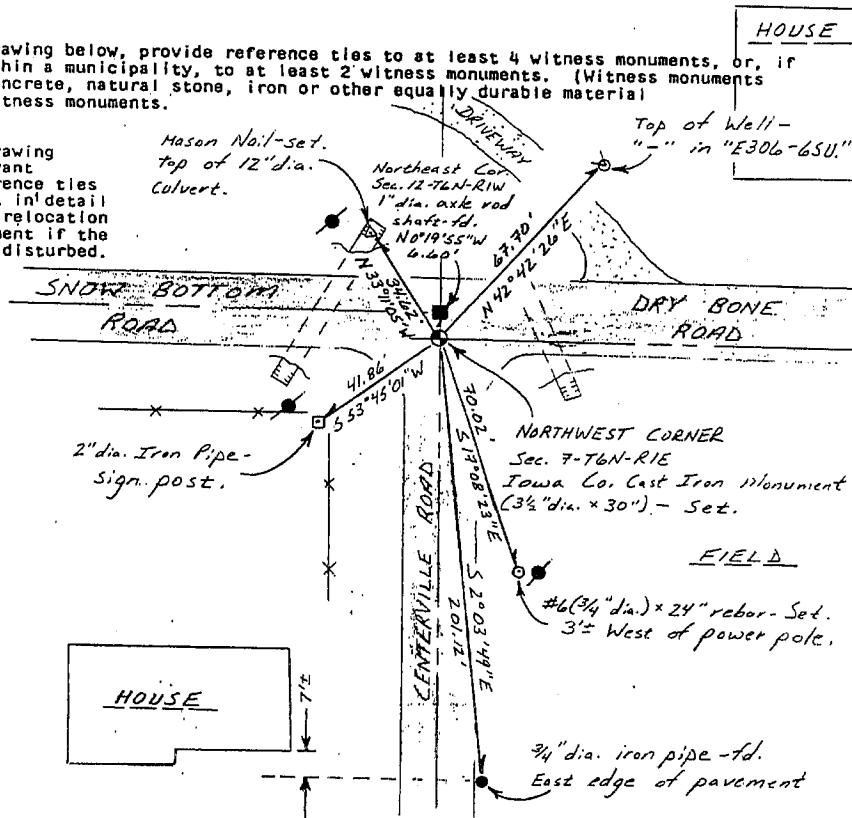 HOUSE
awing below, provide reference ties to at least 4 witness monuments, or, if
hin a municipality, to at least 2 witness monuments. (Witness monuments
ncrete, natural stone, iron or other equally durable material
itness monuments.
rawing
vant
rence ties
in detail
relocation
ment if the
disturbed.
Mason Nail-set.
top of 12" dia.
Culvert.
Northeast Cor.
Sec. 12-T6N-R1W
1" dia. axle rod
shaft-fd.
N0°19'55"W
6.60'
DRIVEWAY
Top of Well-
"-" in "E306-6SU."
67.70'
N 42°42'26"E
N 33°11'05"W
SNOW BOTTOM
ROAD
DRY BONE
ROAD
41.86'
S 53°45'01"W
2" dia. Iron Pipe-
sign post.
70.02'
S 17°08'23"E
NORTHWEST CORNER
Sec. 7-T6N-R1E
Iowa Co. Cast Iron Monument
(3½" dia. x 30") - Set.
CENTERVILLE ROAD
S 2°03'49"E
201.12'
FIELD
#6 (3/4" dia.) x 24" rebar - Set.
3'± West of power pole.
HOUSE
7'±
3/4" dia. iron pipe - fd.
East edge of pavement